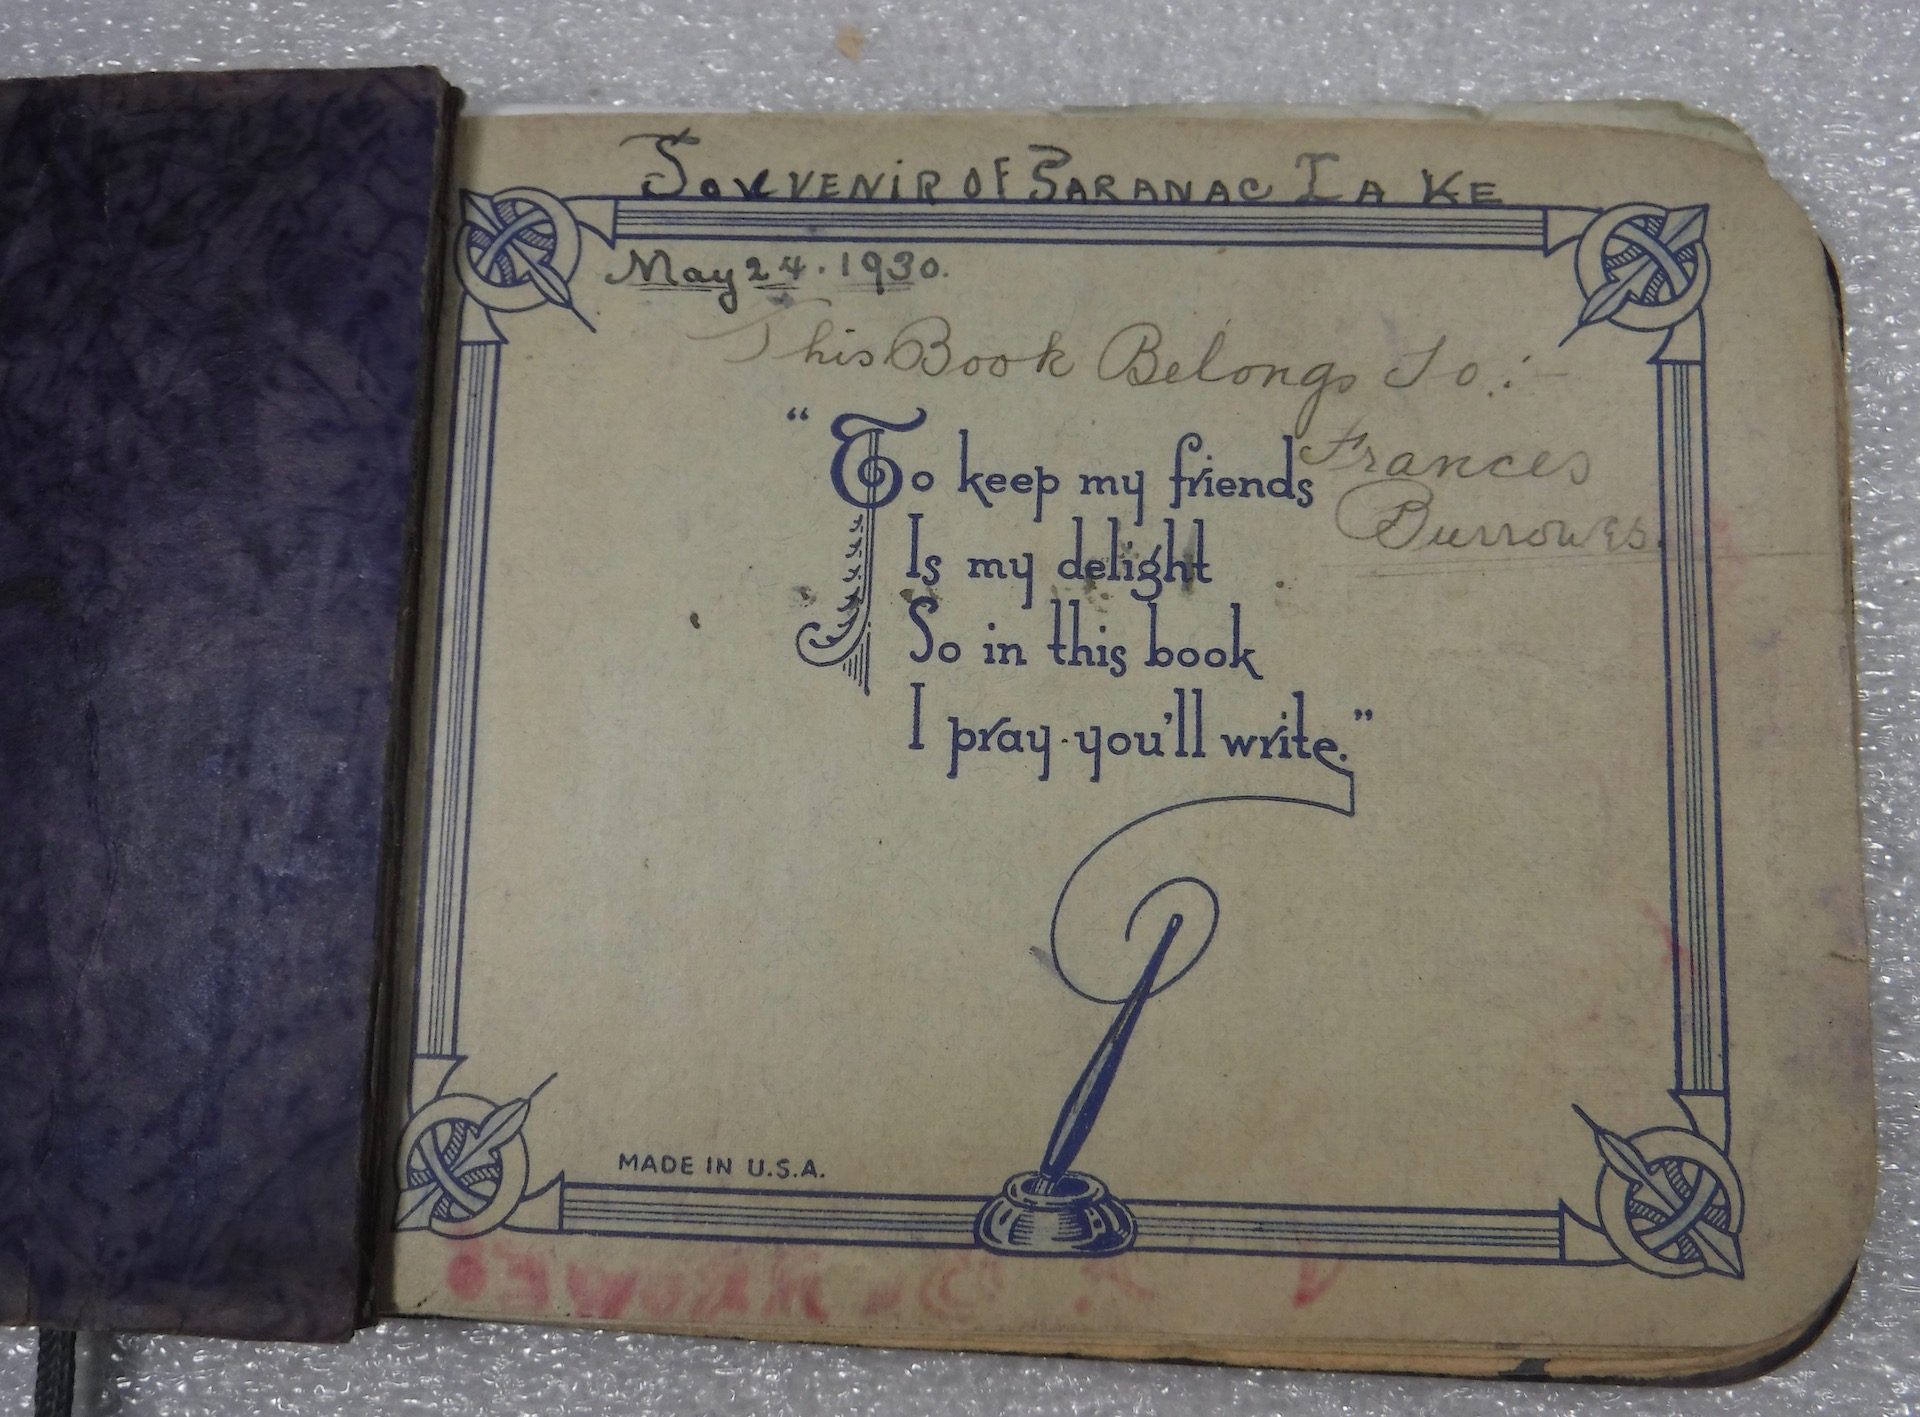 SOUVENIR OF SARANAC LAKE
May 24. 1930.
This Book Belongs To:-
Frances
Burrowes.
“To keep my friends
Is my delight
So in this book
I pray-you'll write.”
MADE IN U.S.A.